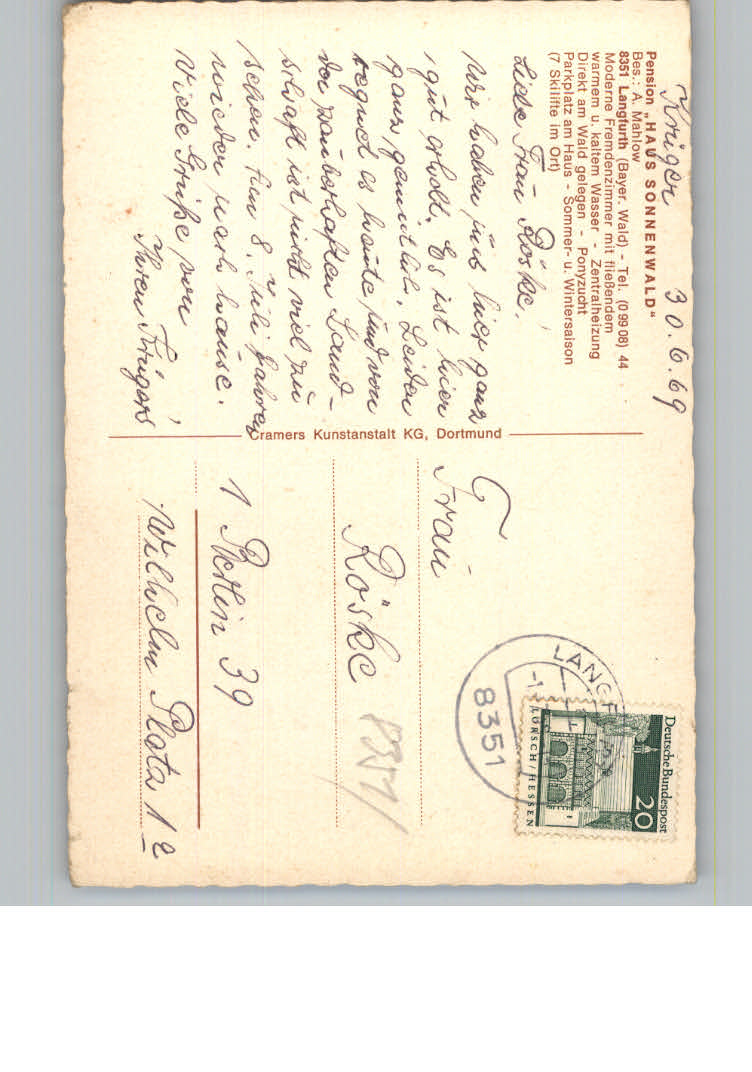 Krüger 30.6.69
Pension „HAUS SONNENWALD“
Bes.: A. Mahlow
8351 Langfurth (Bayer. Wald) - Tel. (0 99 08) 44
Moderne Fremdenzimmer mit fließendem
warmem u. kaltem Wasser - Zentralheizung
Direkt am Wald gelegen - Ponyzucht
Parkplatz am Haus - Sommer- u. Wintersaison
(7 Skilifte im Ort)
Liebe Frau Röske!
Wir haben uns hier ganz
gut erholt. Es ist hier
ganz gemütlich. Leider
regnet es heute und von
der zauberhaften Land-
schaft ist nicht viel zu
sehen. Am 8. Juli fahren
wieder nach hause.
Viele Grüße von
Ihren Krügers
Cramers Kunstanstalt KG, Dortmund
Deutsche Bundespost
20
LORSCH/HESSEN
LANGF
8351
Frau
Röske
8351
1 Berlin 39
Wilhelm Platz 12